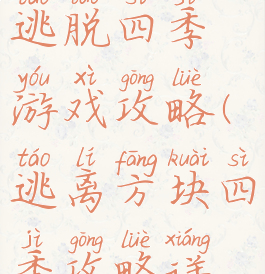 táo tuō sì jì
逃脱四季
yóu xì gōng lüè
游戏攻略(
táo lí fāng kuài sì
逃离方块四
jì gōng lüè xiáng
季攻略详